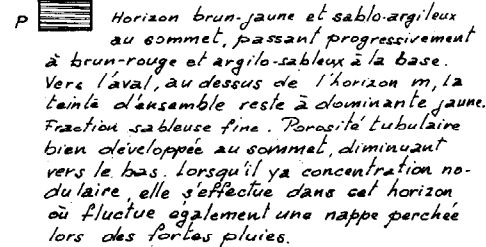 P Horizon brun-jaune et sablo-argileux
au sommet, passant progressivement
à brun-rouge et argilo-sableux à la base.
Vers l'aval, au dessus de l'horizon m, la
teinte d'ensemble reste à dominante jaune.
Fraction sableuse fine. Porosité tubulaire
bien développée au sommet, diminuant
vers le bas. Lorsqu'il y a concentration no-
dulaire, elle s'effectue dans cet horizon
où fluctue également une nappe perchée
lors des fortes pluies.